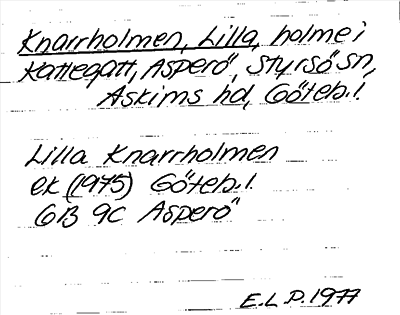 Knarrholmen, Lilla, holme i
Kattegatt, Asperö, Styrsö sn,
Askims hd, Göteb. l.
Lilla Knarrholmen
ek (1975) Göteb. l.
6B 9c Asperö
E.L.P. 1977